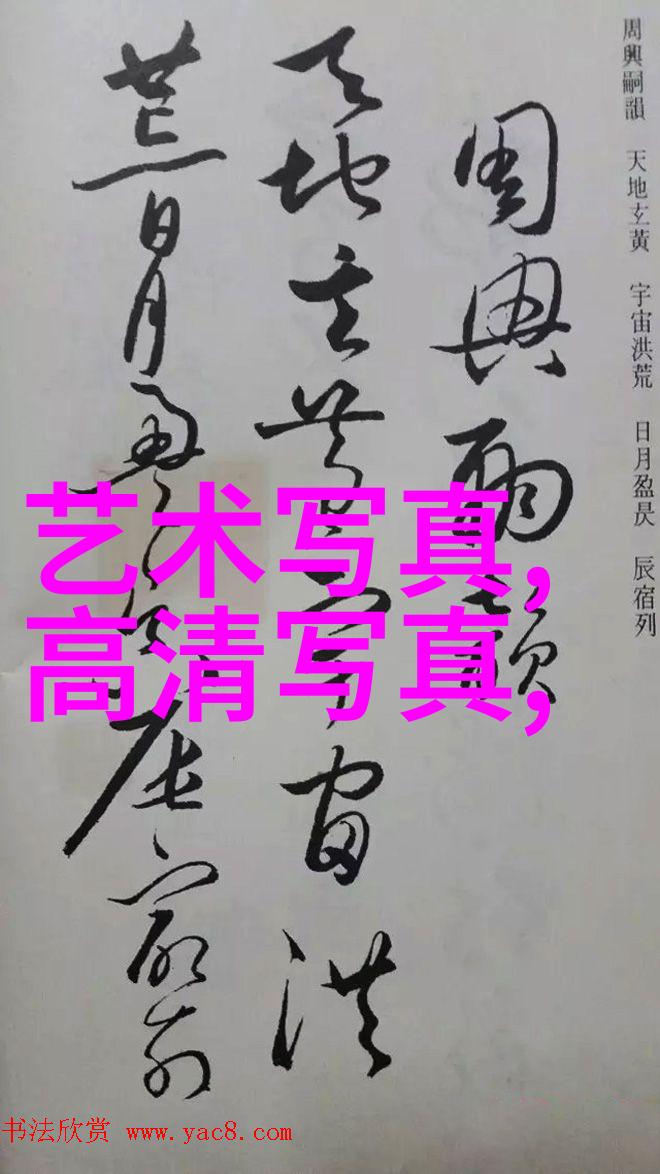 周興嗣韻　天地玄黃　宇宙洪荒　日月盈昃　辰宿列
周興嗣韻
天地玄黃宇宙洪
荒日月盈昃辰宿列
艺术写真,
高清写真,
书法欣赏 www.yac8.com